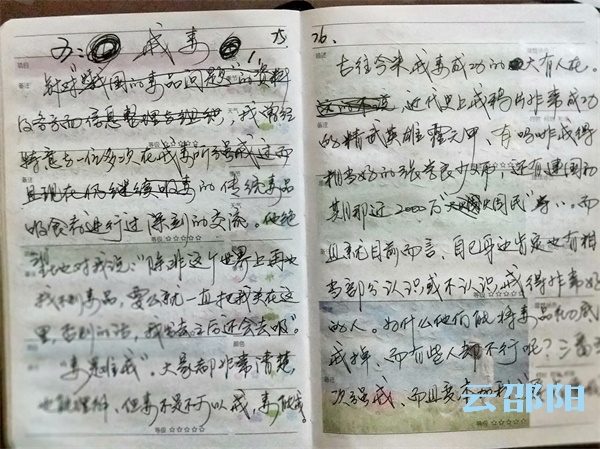 五: 戒毒 25.
针对我国的毒品问题的资料
及各方面信息整理与组织,我曾经
特意与一位多次在戒毒所强戒过而
且现在仍继续吸毒的传统毒品
吸食者进行过深刻的交流。他绝
望地对我说:“除非这个世界上再也
找不到毒品,要么就一直把我关在这
里,否则的话,我出去之后还会去吸”。
“毒是难戒”。大家都非常清楚,
也能理解,但毒不是不可以戒,毒能戒
26.
古往今来戒毒成功的大有人在。
近代史上戒鸦片非常成功
的精武英雄霍元甲、有吗啡戒得
相当好的张学良少帅,还有建国初
期那近2000万“国民”等..。而
且就目前而言,自己身边肯定也有相
当部分认识或不认识,戒得非常好
的人。为什么他们能将毒品成功
戒掉、而有些人却不行呢?三番五
次强戒、而且
云邵阳